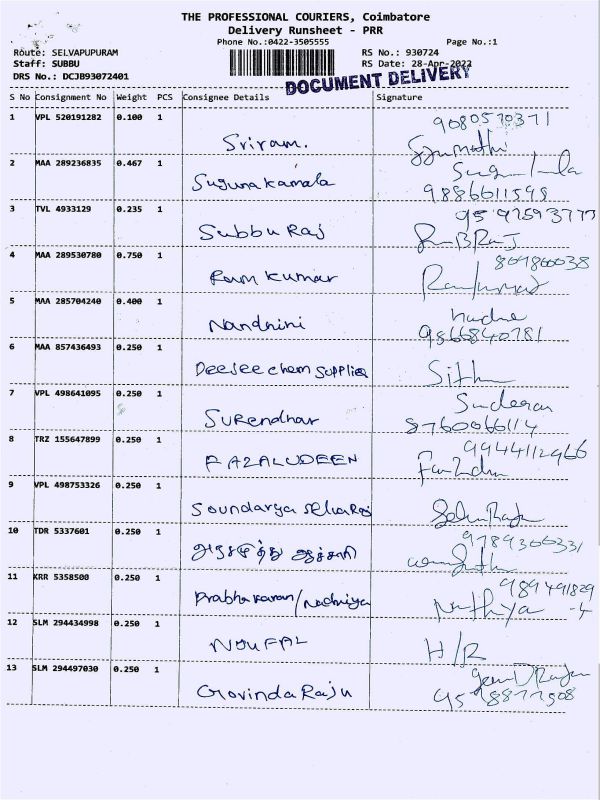 THE PROFESSIONAL COURIERS, Coimbatore
Delivery Runsheet - PRR
Phone No.:0422-3505555 Page No.:1
Route: SELVAPUPURAM RS No.: 930724
Staff: SUBBU RS Date: 28-Apr-2022
DRS No.: DCJB93072401
DOCUMENT DELIVERY
S No Consignment No Weight PCS Consignee Details Signature
1 VPL 520191282 0.100 1 Sriram. 9080570371
2 MAA 289236835 0.467 1 Suguna kamala
9886611598
3 TVL 4933129 0.235 1 Subbu Raj 9597593777
SuBRaJ
4 MAA 289530780 0.750 1 Ram kumar 804860038
Ramkumar
5 MAA 285704240 0.400 1 Nandhini
9866840781
6 MAA 857436493 0.250 1 Deejee chem Supplies
7 VPL 498641095 0.250 1 Surendhar
8760066114
8 TRZ 155647899 0.250 1 FAZALUDEEN 9944112966
9 VPL 498753326 0.250 1 Soundarya
10 TDR 5337601 0.250 1 9789300331
11 KRR 5358500 0.250 1 Prabhakaran/Nadhiya 989491829
Nathiya -4
12 SLM 294434998 0.250 1 NOUFAL H/R
13 SLM 294497030 0.250 1 Govinda Raju
9588877508